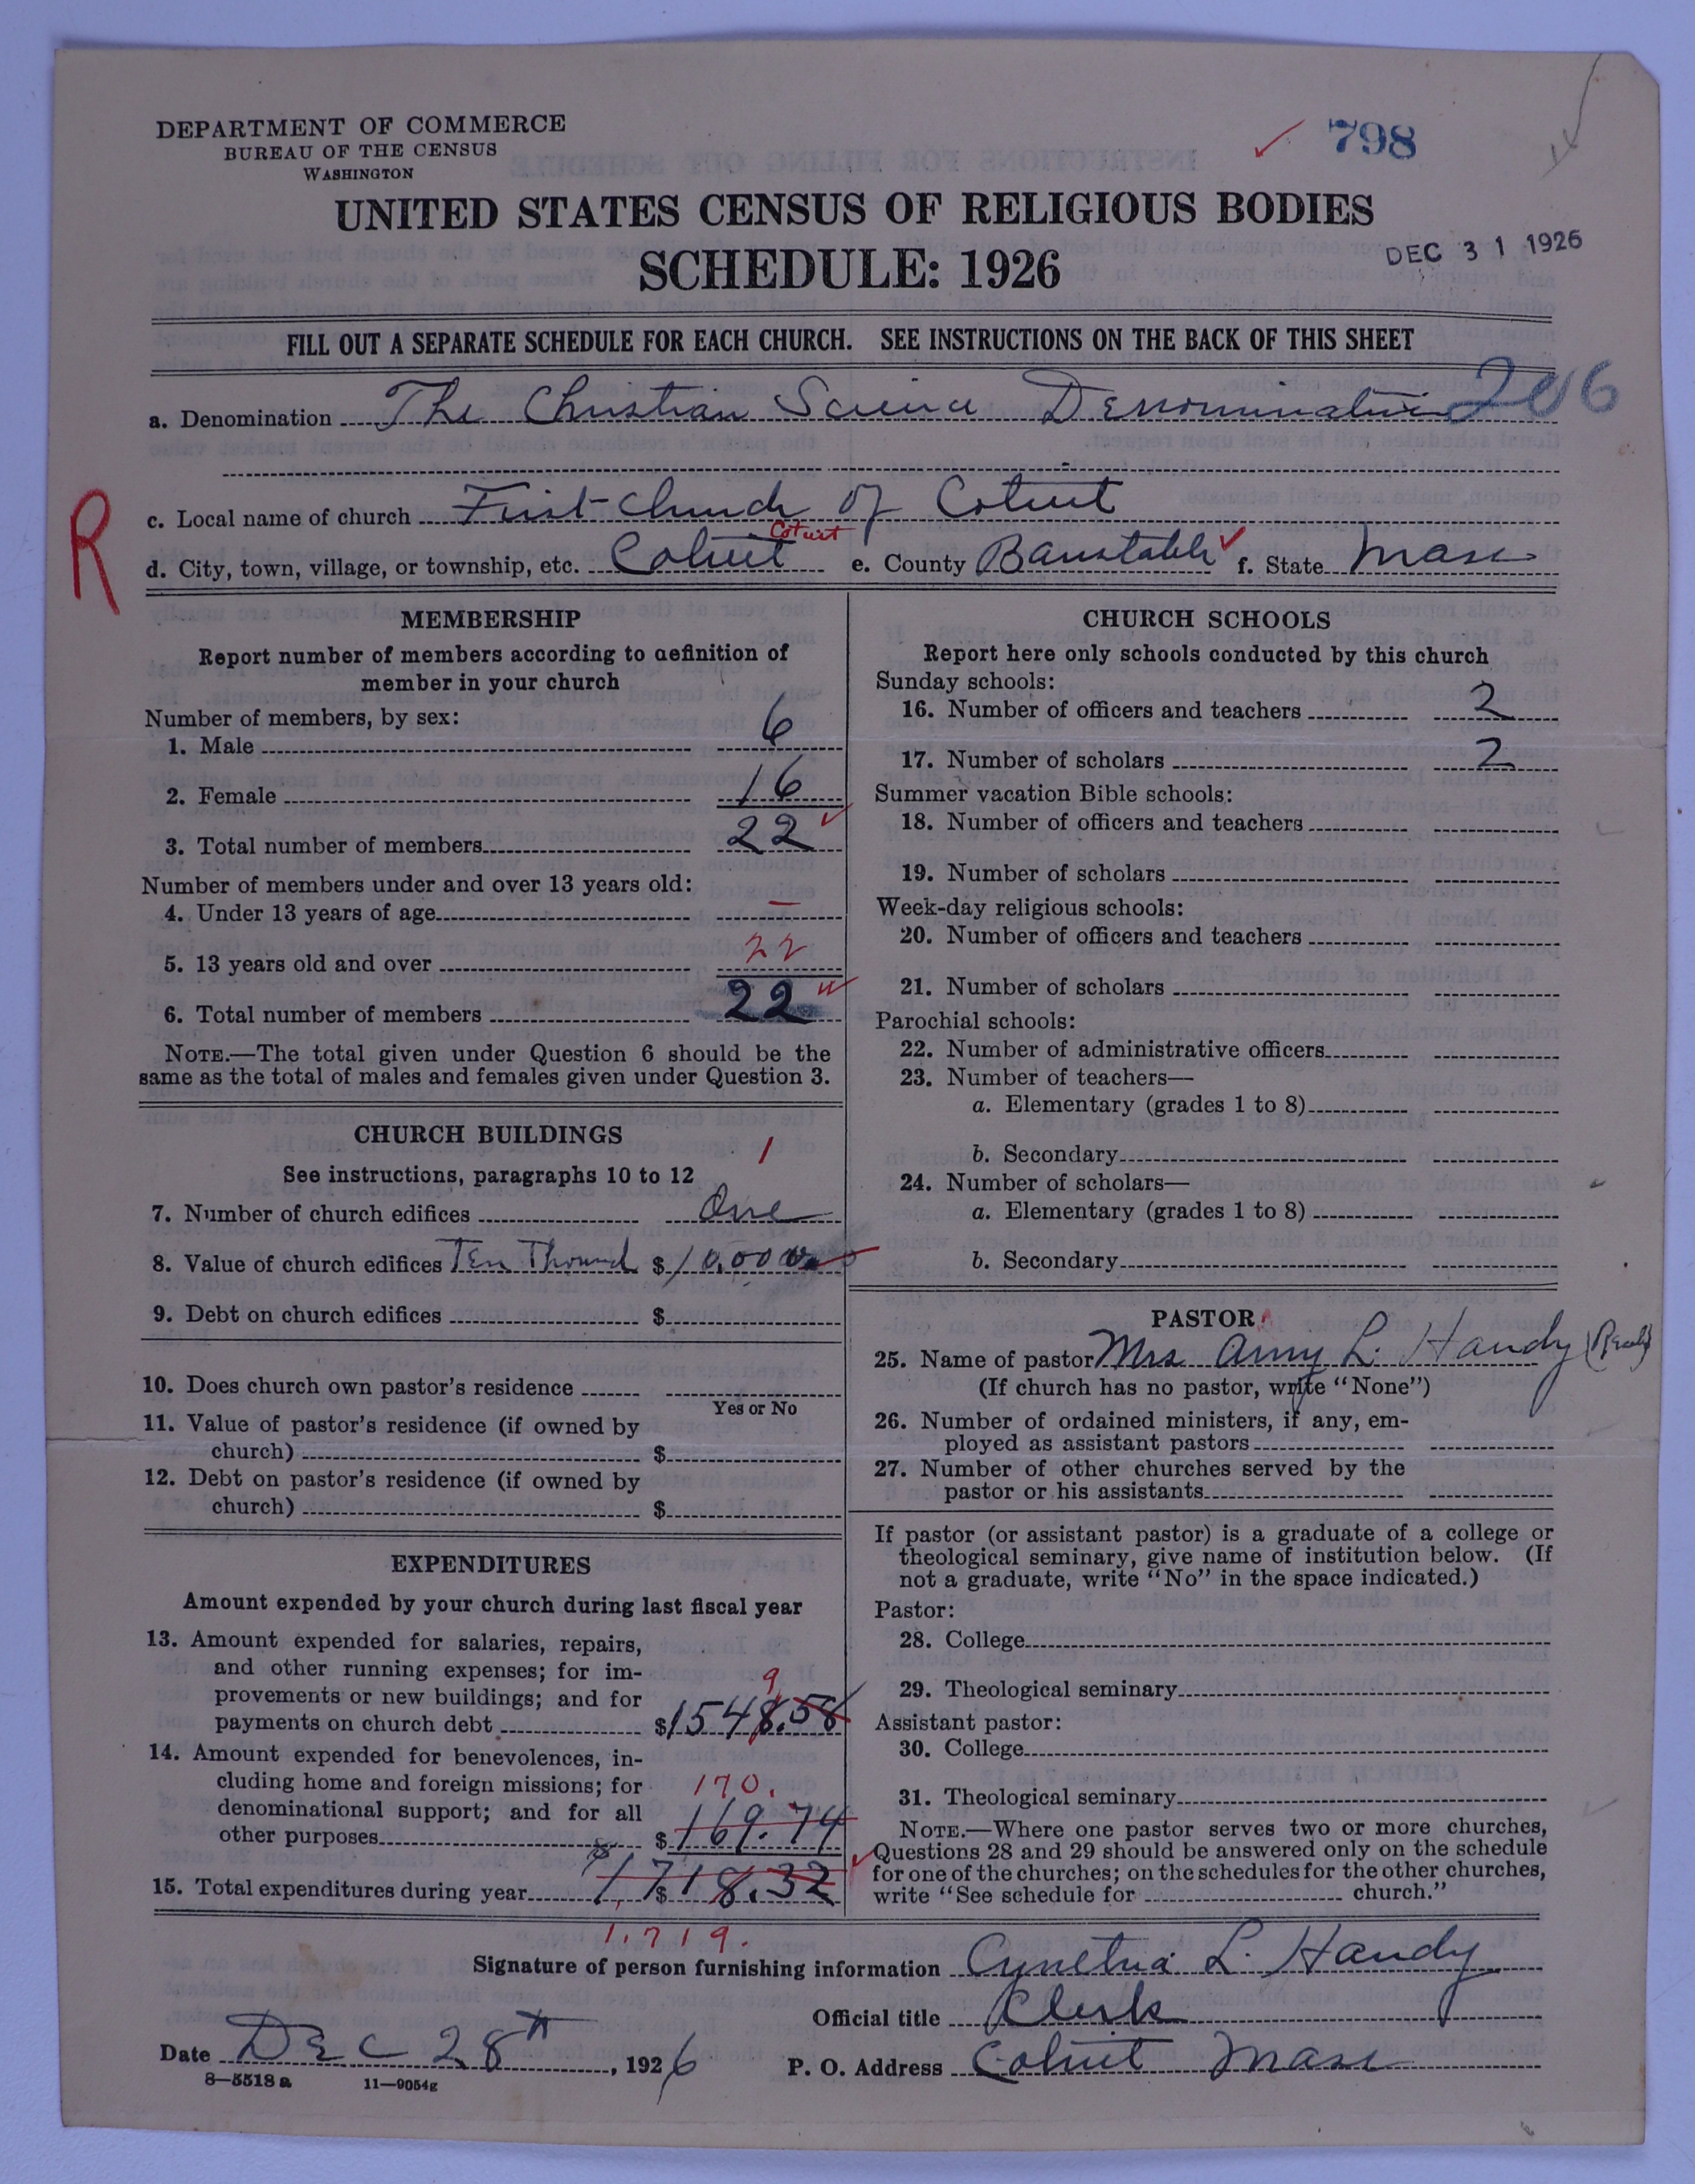 DEPARTMENT OF COMMERCE
BUREAU OF THE CENSUS
WASHINGTON
798
UNITED STATES CENSUS OF RELIGIOUS BODIES
SCHEDULE: 1926
DEC 31 1926
FILL OUT A SEPARATE SCHEDULE FOR EACH CHURCH. SEE INSTRUCTIONS ON THE BACK OF THIS SHEET
a. Denomination The Christian Science Denomination 206
R
c. Local name of church First Church of Cotuit
Cotuit
d. City, town, village, or township, etc. Cotuit e. County Barnstable f. State Mass
MEMBERSHIP
Report number of members according to definition of
member in your church
Number of members, by sex:
1. Male 6
2. Female 16
3. Total number of members 22
Number of members under and over 13 years old:
4. Under 13 years of age —
5. 13 years old and over 22
6. Total number of members 22
NOTE.—The total given under Question 6 should be the
same as the total of males and females given under Question 3.
CHURCH BUILDINGS
1
See instructions, paragraphs 10 to 12
7. Number of church edifices One
8. Value of church edifices Ten Thousand $10,000
9. Debt on church edifices $
10. Does church own pastor's residence
Yes or No
11. Value of pastor's residence (if owned by
church) $
12. Debt on pastor's residence (if owned by
church) $
EXPENDITURES
Amount expended by your church during last fiscal year
13. Amount expended for salaries, repairs,
and other running expenses; for im-
9
provements or new buildings; and for
payments on church debt $1548.58
14. Amount expended for benevolences, in-
cluding home and foreign missions; for
170.
denominational support; and for all
other purposes $169.74
15. Total expenditures during year $1718.32
1,719.
CHURCH SCHOOLS
Report here only schools conducted by this church
Sunday schools:
16. Number of officers and teachers 2
17. Number of scholars 2
Summer vacation Bible schools:
18. Number of officers and teachers
19. Number of scholars
Week-day religious schools:
20. Number of officers and teachers
21. Number of scholars
Parochial schools:
22. Number of administrative officers
23. Number of teachers—
a. Elementary (grades 1 to 8)
b. Secondary
24. Number of scholars—
a. Elementary (grades 1 to 8)
b. Secondary
PASTOR
25. Name of pastor Mrs Amy L. Handy
(If church has no pastor, write "None")
26. Number of ordained ministers, if any, em-
ployed as assistant pastors
27. Number of other churches served by the
pastor or his assistants
If pastor (or assistant pastor) is a graduate of a college or
theological seminary, give name of institution below. (If
not a graduate, write "No" in the space indicated.)
Pastor:
28. College
29. Theological seminary
Assistant pastor:
30. College
31. Theological seminary
NOTE.—Where one pastor serves two or more churches,
Questions 28 and 29 should be answered only on the schedule
for one of the churches; on the schedules for the other churches,
write "See schedule for church."
Signature of person furnishing information Cynthia L. Handy
Official title Clerk
Date Dec 28th, 1926 P. O. Address Cotuit Mass
8—5518 a 11—9054g